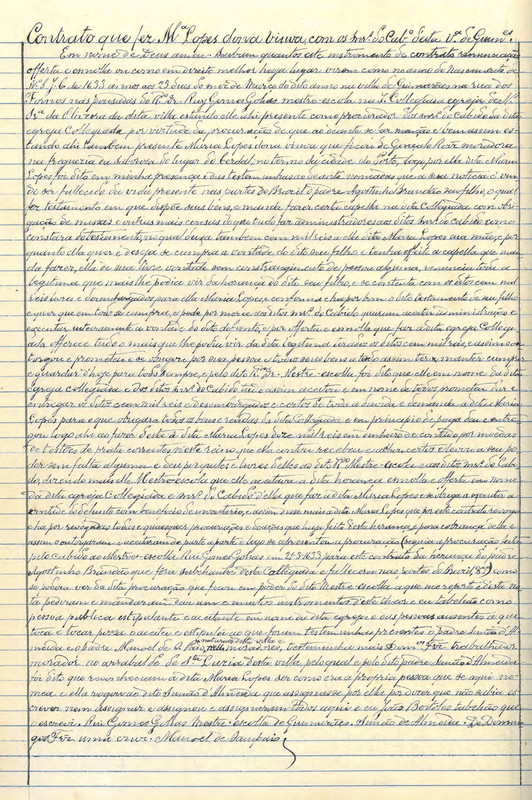 Contrato que fez Mª Lopes dona viuva, com os snrs. do Cabº desta vª de Guimes.
Em nome de Deus amen. Saibam quantos este instrumento de contrato renunciação
offerta e ou como em direito melhor haja lugar virem como no anno do Nascimento de
N. S. J. C. de 1633 annos aos 29 dias do mez de Março do dito anno na villa de Guimarães na rua dos
Fornos nas pousadas do Rdo. Dr. Ruy Gomes Golias mestre escola na Collegiada egreja de N.
Srª da Oliveira da dita villa estando elle ahi presente como procurador dos snrs. do Cabido da dita
egreja Collegiada por virtude da procuração de que ao deante se far menção e bem assim es-
tando ahi tambem presente Maria Lopes dona viuva que ficou de Gonçalo moradora
na freguezia de do lugar de termo da cidade do Porto, logo por ella dita Maria
Lopes foi dito em minha presença e das testemunhas de que a sua noticia vi-
ndo ser fallecido da vida presente nas partes do Brazil o padre Agostinho Brandão seu filho, o qual
fez testamento em que dispôz seus bens, e manda fazer certa capella na dita Collegiada com obri-
gação de missas e outras mais cousas de que tudo faz administradores aos ditos snrs. do Cabido como
constava do testamento, no qual deixa tambem cem mil reis a ella dita Maria Lopes sua mãe, e por
quanto ella quer e deseja se cumpra a vontade do dito seu filho e tenha effeito a capella que man-
da fazer, ella de sua livre vontade sem constrangimento de pessoa alguma, renuncia toda a
legitima que mais lhe podia vir da herança do dito seu filho, e se contenta com os ditos cem mil
reis livres e desembargados para ella Maria Lopes, conforme ha por bom o dito testamento de seu filho
e quer que em todo se cumpra, e pede por mercê aos ditos snrs. do Cabido queiram acceitar a administração e
executar inteiramente a vontade do dito defunto, e por offerta e que faz á dita egreja Collegi-
ada offerece tudo o mais que lhe podia vir da dita legitima tirados os ditos cem mil reis, e assim o ou-
torgou e prometteu e se obrigou por sua pessoa e todos os seus bens a todo assim ter e manter cumprir
e guardar d'hoje para todo sempre, e pelo dito Rdo. Dr. Mestre-escolla foi dito que elle em nome da
egreja Collegiada e dos ditos snrs. do Cabido tudo assim acceitava e em nome de todos promettia dar e
entregar os ditos cem mil reis e desembargados e á dita Maria
Lopes para o que obrigava todos os bens e rendas da dita Collegiada e em principio de paga deu e entre-
gou logo ahi ao fazer desta á dita Maria Lopes dize mil reis em dinheiro de contado por moedas
de tostões de prata correntes neste reino, que ella contou recebeu e achou certos e levou a seu po-
der sem falta alguma e deu por quites e livres delles ao dito Rdo Mestre escola e aos ditos snrs. do Cabi-
do, dizendo mais elle Mestre escola que elle acceitava a dita herança e offerta em nome
da dita egreja Collegiada e snrs. do Cabido della que faz a dita Maria Lopes e se obriga a executar a
vontade do defunto com beneficio de inventario, e assim disse mais a dita Maria Lopes que por este contrato revoga
e ha por revogadas todas e quaesquer procurações e doações que haja feito desta herança e para cobrança della e
assim o outorgaram e acceitaram de parte a parte e logo se apresentou a procuração (segue a procuração feita
pelo Cabido ao Mestre-escolla Ruy Gomes Golias em 29-3-1633 para este contrato da herança do padre
Agostinho Brandão que fora sub-chantre desta Collegiada e falleceu nas partes do Brazil, 8ª) como
se dobora ver da dita procuração que ficou em poder do dito Mestre escolla a que me reporto e desta no-
ta pediram e mandaram dar um e muitos instrumentos deste theor e eu tabellião como
pessoa publica estipulante e acceitante em nome da dita egreja e das pessoas ausentes a que
toca e tocar possa o acceitei e estipulei ao que foram testemunhas presentes o padre Simão d'Al-
meida e o padre Manoel de S. Paio, naturaes desta villa e nella moradores, testemunha mais Domos Fre trabalhador
morador no arrabalde de Sta Luzia desta villa, pelo qual e pelo dito padre Simão d'Almeida
foi dito que reconheciam á dita Maria Lopes ser como era a propria pessoa que se aqui no-
mea e ella rogou ao dito Simão d'Almeida que assignasse por ella por dizer que não sabia es-
crever nem assignar e assignou e assignaram todos aqui e eu João Bertolles tabellião que
o escrevi. Ruy Gomes Golias Mestre-escolla de Guimarães. Simão de Almeida. De Domin-
gos Fre uma cruz. Manoel de Sampaio.